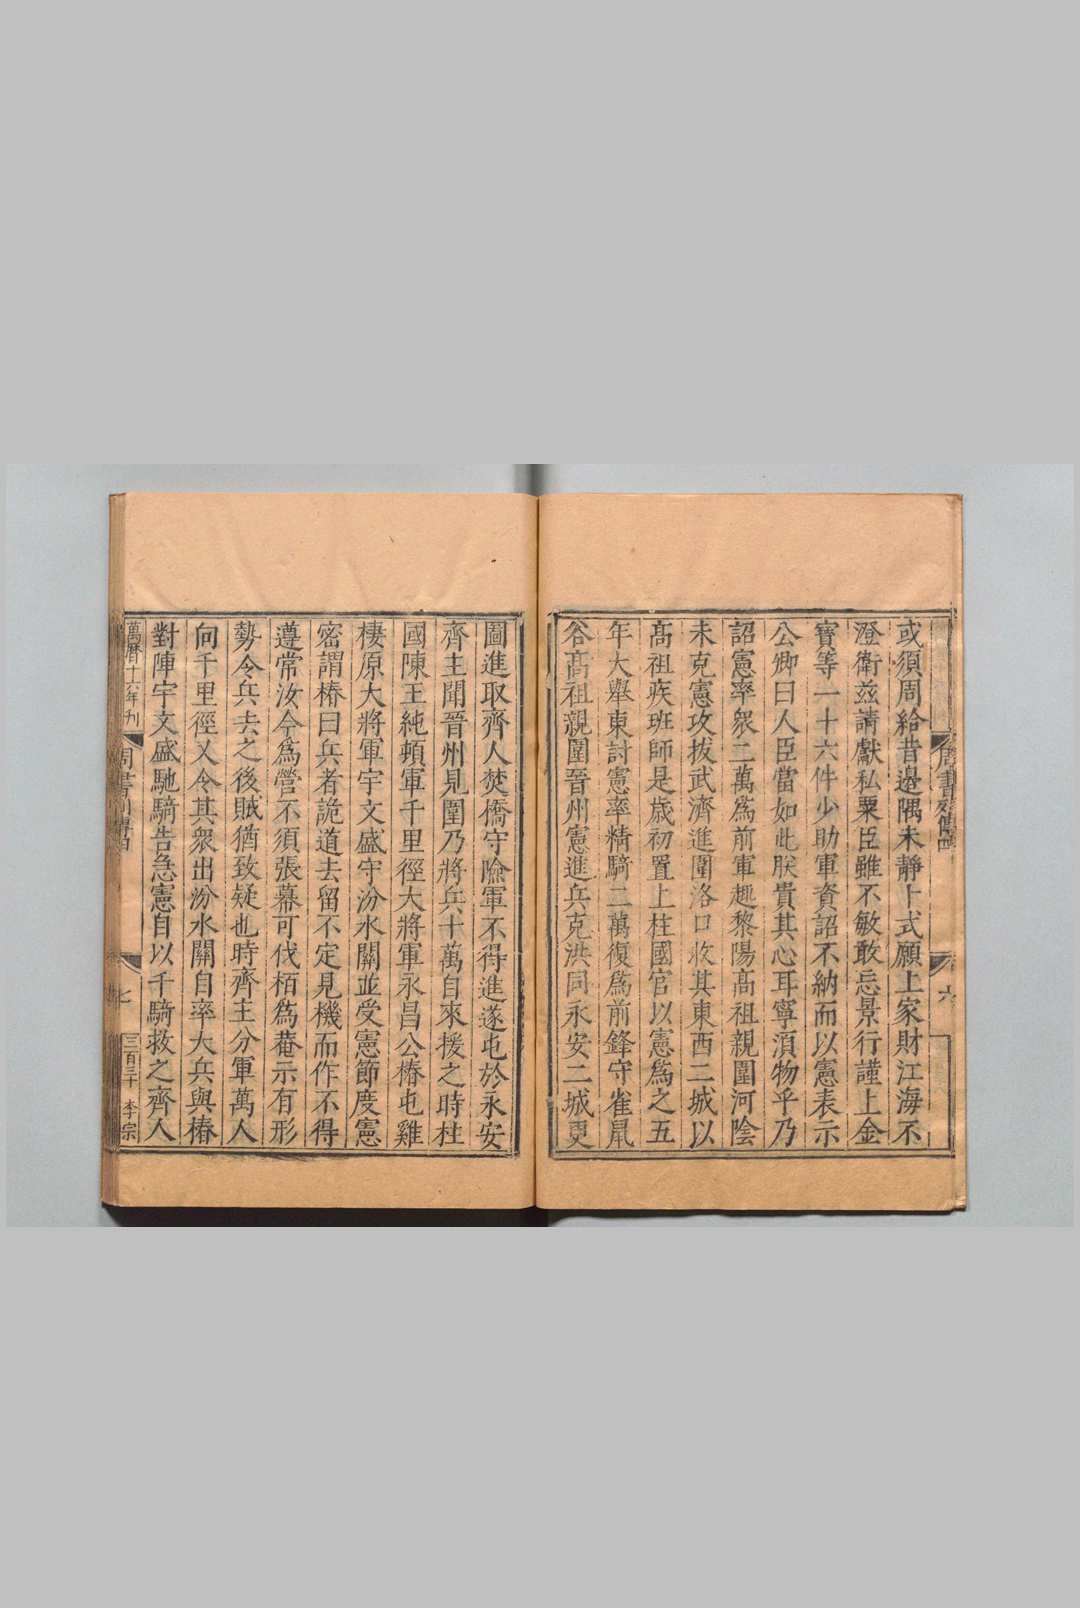 或須周給昔邊隅未靜卜式願上家財江海不
澄衛兹請獻私粟臣雖不敏敢忘景行謹上金
寶等一十六件少助軍資詔不納而以憲表示
公卿曰人臣當如此朕貴其心耳寧湏物乎乃
詔憲率衆二萬爲前軍趣黎陽髙祖親圍河陰
未克憲攻拔武濟進圍洛口收其東西二城以
髙祖疾班師是歲初置上柱國官以憲爲之五
年大舉東討憲率精騎二萬復爲前鋒守雀鼠
谷髙祖親圍晉州憲進兵克洪同永安二城更
圖進取齊人焚橋守險軍不得進遂屯於永安
齊主聞晉州見圍乃將兵十萬自來援之時柱
國陳王純頓軍千里徑大將軍永昌公椿屯雞
棲原大將軍宇文盛守汾水關並受憲節度憲
密謂椿曰兵者詭道去留不定見機而作不得
遵常汝今爲營不須張幕可伐栢爲菴示有形
勢令兵去之後賊猶致疑也時齊主分軍萬人
向千里徑又令其衆出汾水關自率大兵與椿
對陣宇文盛馳騎告急憲自以千騎救之齊人
萬曆十六年刊
周書列傳四
七
三百三十 李宗